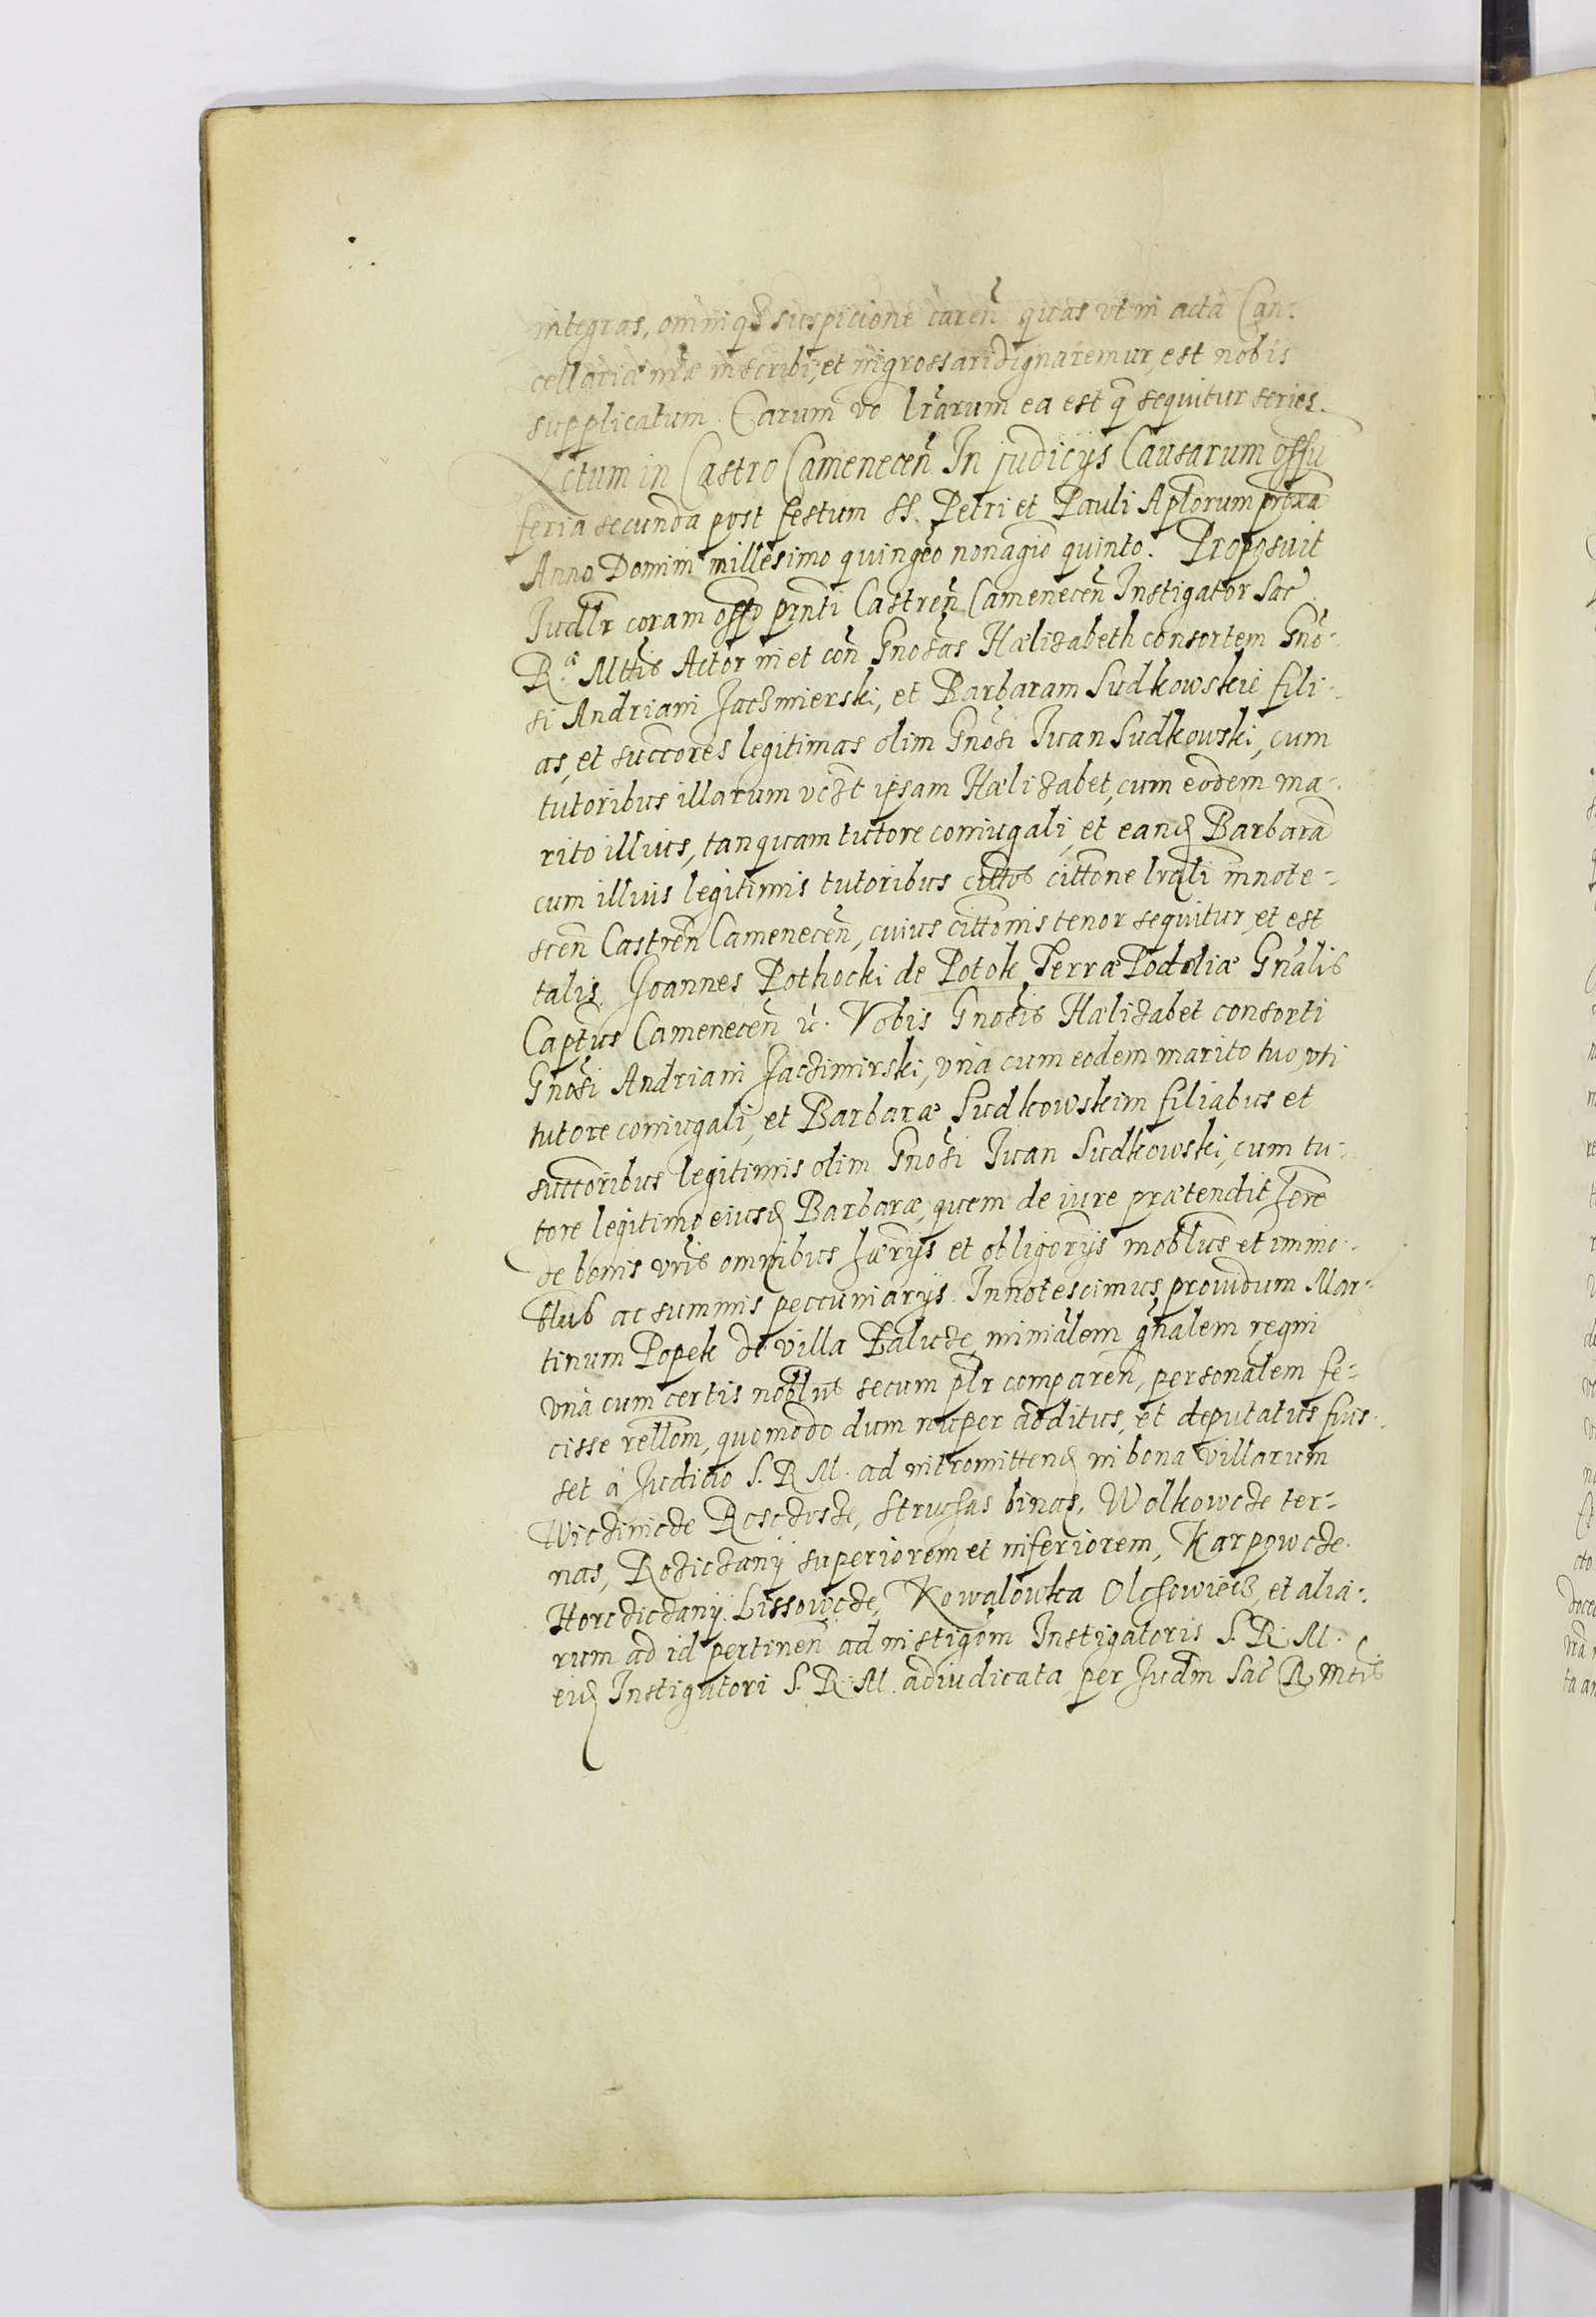 integras, omniq3 suspicione careñ quas vt in acta Can:
cellariæ nr̃æ inscribi, et ingrossari dignaremur, est nobis
supplicatum. Earum vo lrarum ea est q̃ sequitur series.
Actum in Castro Cameneceñ In judicijs Causarum offii
feria secunda post festum SS. Petri et Pauli Aplorum proxa
Anno Domini millesimo quingeo nonagio quinto. Proposuit
Judlr coram offo pnti Castreñ Camenecen̄ Instigator Sac
R.æ Mttis Actor in et coñ Gnosas Hælizabeth consortem Gno:
si Andriani Jaczmierski, et Barbaram Sudkowskie fili:
as, et succores legitimas olim Gnosi Iuan Sudkowski, cum
tutoribus illarum vczt ipsam Hælizabet, cum eodem ma:
rito illius, tanquam tutore coniugali, et eand Barbarã
cum illius legitimis tutoribus cittos cittone lrali innote:
sceñ Castreñ Cameneceñ, cuius cittonis tenor sequitur, et est
talis. Joannes Pothocki de Potok Terræ Podoliæ Gnalis
Captus Cameneceñ ir̃. Vobis Gnosis Hælizabet consorti
Gnosi Andriani Jaczimirski, vna cum eodem marito tuo, vti
tutore coniugali, et Barbaræ Sudkowskim filiabus et
succoribus legitimis olim Gnosi Iuan Sudkowski, cum tu:
tore legitimo eiusd Barbaræ, quem de iure prætendit here
de bonis vris omnibus hærijs et obligorijs moblius et immo:
blius ac summis peccuniarijs. Innotescimus, prouidum Mar:
tinum Popek de villa Balicze, minialem gnalem regni
vna cum certis noblius secum plr compareñ, personalem fe:
cisse rellom, quomodo dum nuper additus, et deputatus fuis:
set a Judicio S. R. M. ad intromittend in bona villarum
Wiczinicze Rosczoscze, Struhas binas, Wolkowcze ter:
nas, Rozicżanij superiorem et inferiorem, Karpowcze
Horcdiczanij. Lissowcze, Kowalowka Olchowiecz, et alia:
rum ad id pertineñ ad instigom Instigatoris S. R. M.
eid Instigatori S. R. M. adiudicata per Judm Sac R Mttis